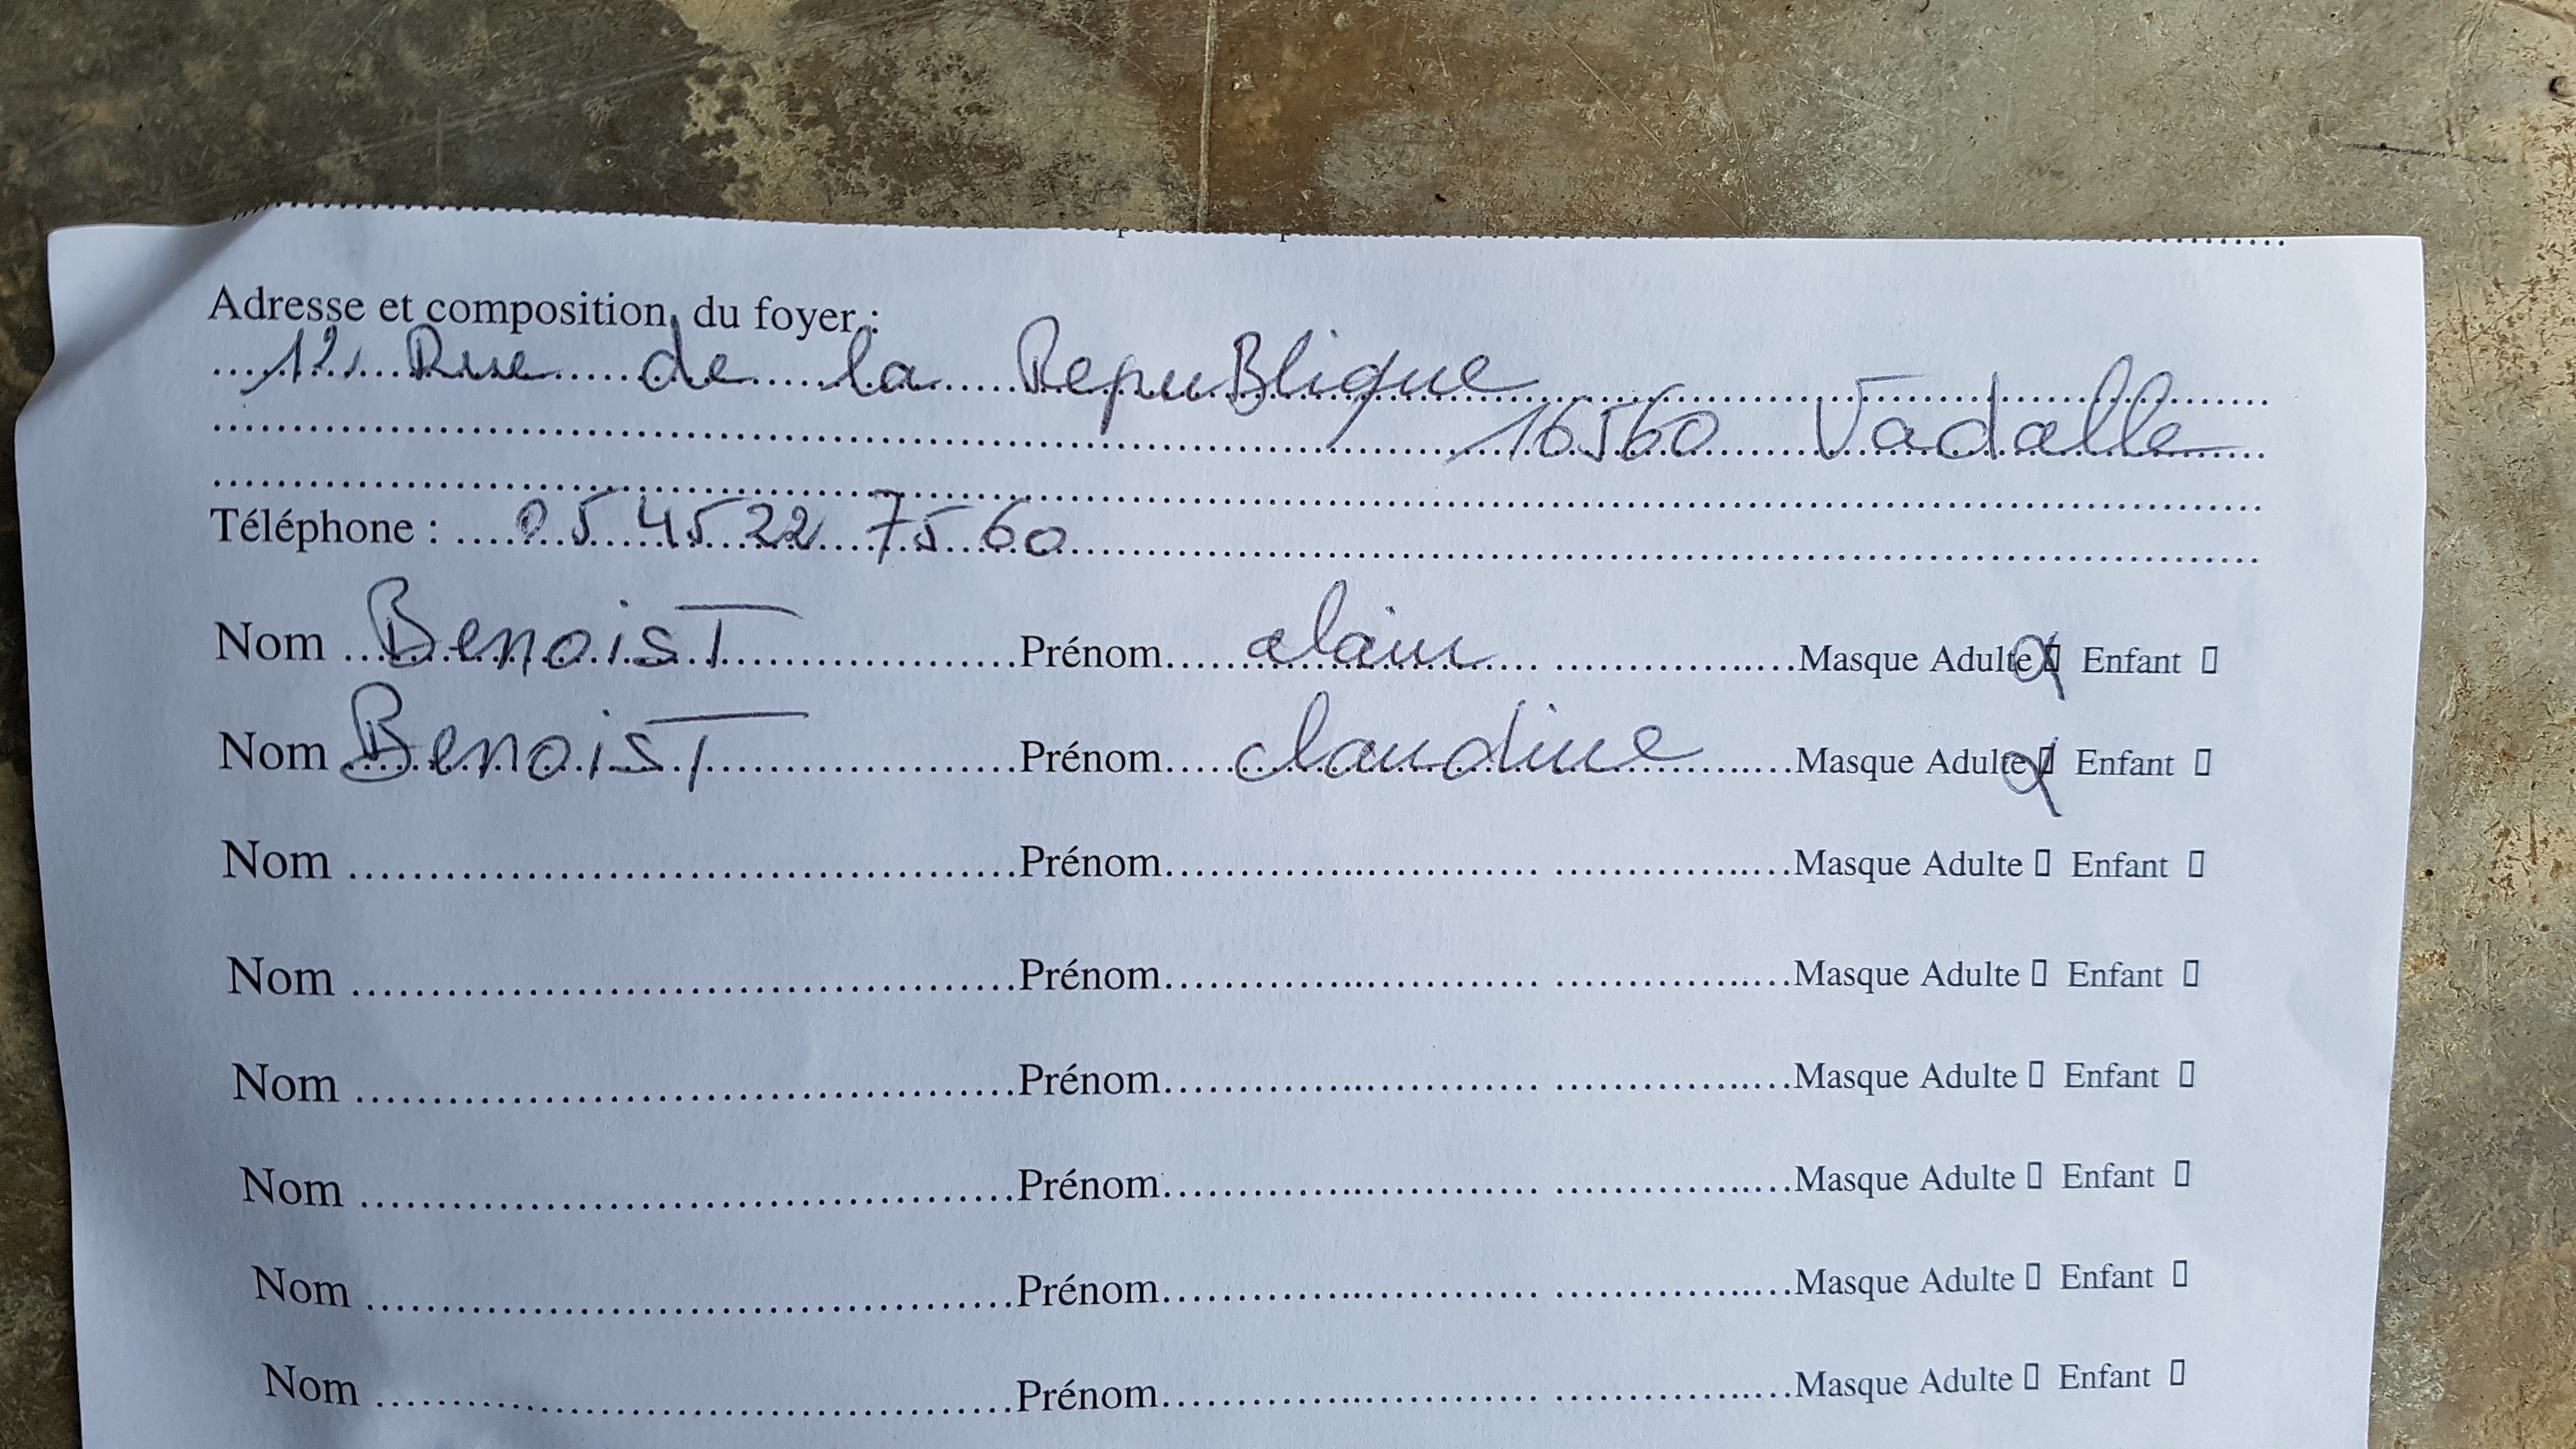 Adresse et composition du foyer :
12, Rue de la RepuBlique
16560 Vadalle
Téléphone : 05 45 22 75 60
Nom BenoisT Prénom alain Masque Adulte Enfant
Nom BenoisT Prénom claudine Masque Adulte Enfant
Nom Prénom Masque Adulte Enfant
Nom Prénom Masque Adulte Enfant
Nom Prénom Masque Adulte Enfant
Nom Prénom Masque Adulte Enfant
Nom Prénom Masque Adulte Enfant
Nom Prénom Masque Adulte Enfant